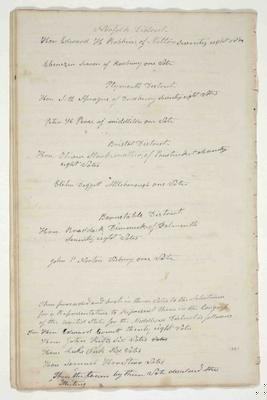 Norfolk District
Hon Edward H Robbins of Milton seventy eight votes
Ebenezer Seaver of Roxbury one Vote
Plymouth District
Hon Seth Sprague of Duxbury seventy eight votes
Peter H Peirce of middleboro one Vote
Bristol District
Hon Oliver Starkweather, of Pawtucket seventy
eight Votes
Elihu Daggett Attleborough one Vote
Barnstable District
Hon Braddock Dimmick of Falmouth
seventy eight Votes
John P Norton Tisbury one Vote
then proceeded and took in their votes to the Selectmen
for a Representative to represent them in the Congress
of the united States for the Middlesex District as follows
Hon Edward Everett thirty eight votes
Hon John Six Votes
Hon Luke Fisk Votes
Hon Samuel Votes